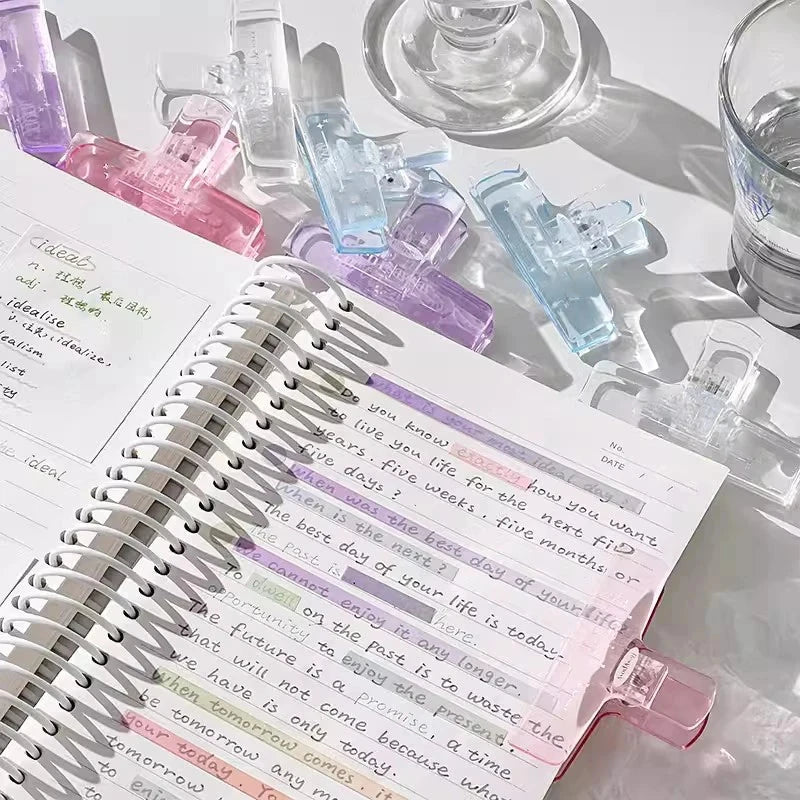 ideal
n. 理想 /
adj. 理想的
idealise
v. idealize,
idealism
list
ty
the ideal
No.
DATE / /
What is your most ideal day?
Do you know exactly how you want
to live you life for the next five
years. five weeks. five months or
five days?
When was the best day of your life?
When is the next?
The best day of your life is today.
The past is here.
We cannot enjoy it any longer.
To dwell on the past is to waste the
opportunity to enjoy the present.
The future is a promise, a time
that will not come because what
we have is only today.
When tomorrow comes, it
be tomorrow any
your today. You
tomorrow
to enjoy
to